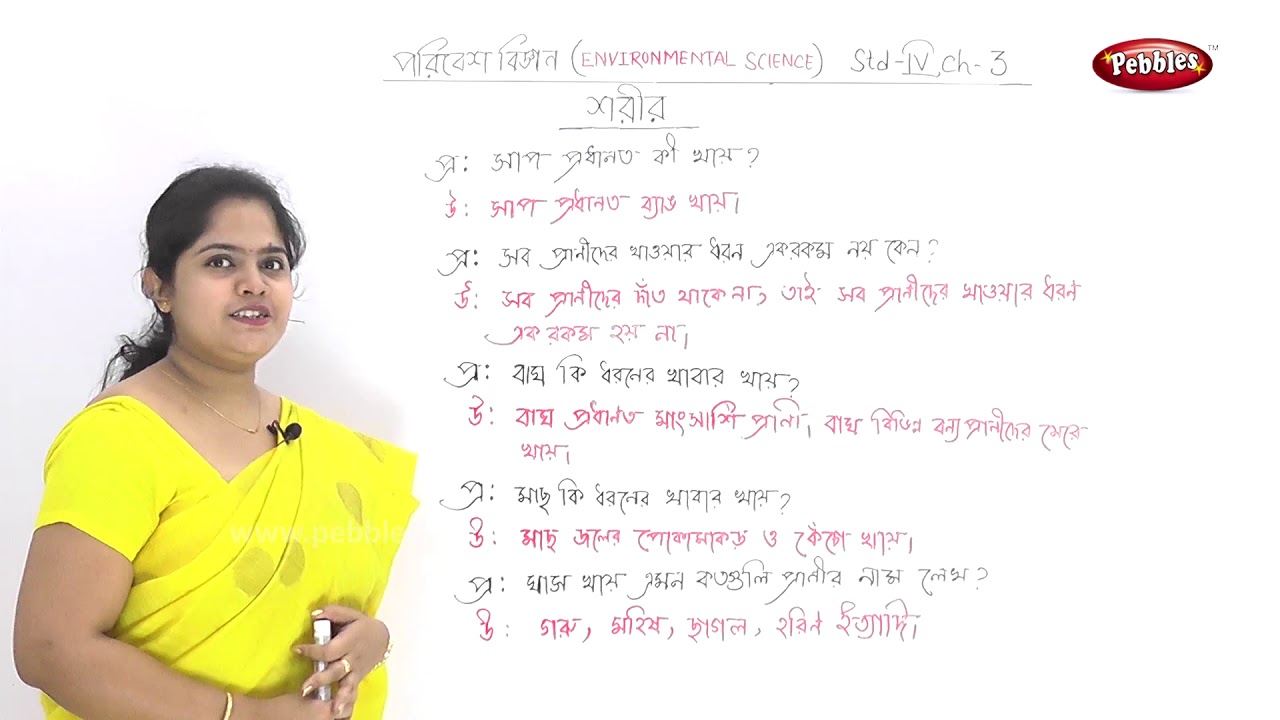 পরিবেশ বিজ্ঞান (ENVIRONMENTAL SCIENCE) Std-IV, Ch-3
Pebbles TM
শরীর
প্র: সাপ প্রধানত কী খায়?
উ: সাপ প্রধানত ব্যাঙ খায়।
প্র: সব প্রানীদের খাওয়ার ধরন একরকম নয় কেন?
উ: সব প্রানীদের দাঁত থাকে না, তাই সব প্রানীদের খাওয়ার ধরন
একরকম হয় না।
প্র: বাঘ কি ধরনের খাবার খায়?
উ: বাঘ প্রধানত মাংসাশি প্রানী। বাঘ বিভিন্ন বন্যপ্রানীদের মেরে
খায়।
প্র: মাছ কি ধরনের খাবার খায়?
উ: মাছ জলের পোকামাকড় ও কেঁচো খায়।
www.pebble
প্র: ঘাস খায় এমন কতগুলি প্রানীর নাম লেখ?
উ: গরু, মহিষ, ছাগল, হরিন ইত্যাদি।